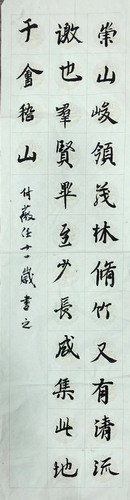 崇山峻領茂林脩竹又有清流
激也羣賢畢至少長咸集此地
于會稽山
付薇任十一歲書之